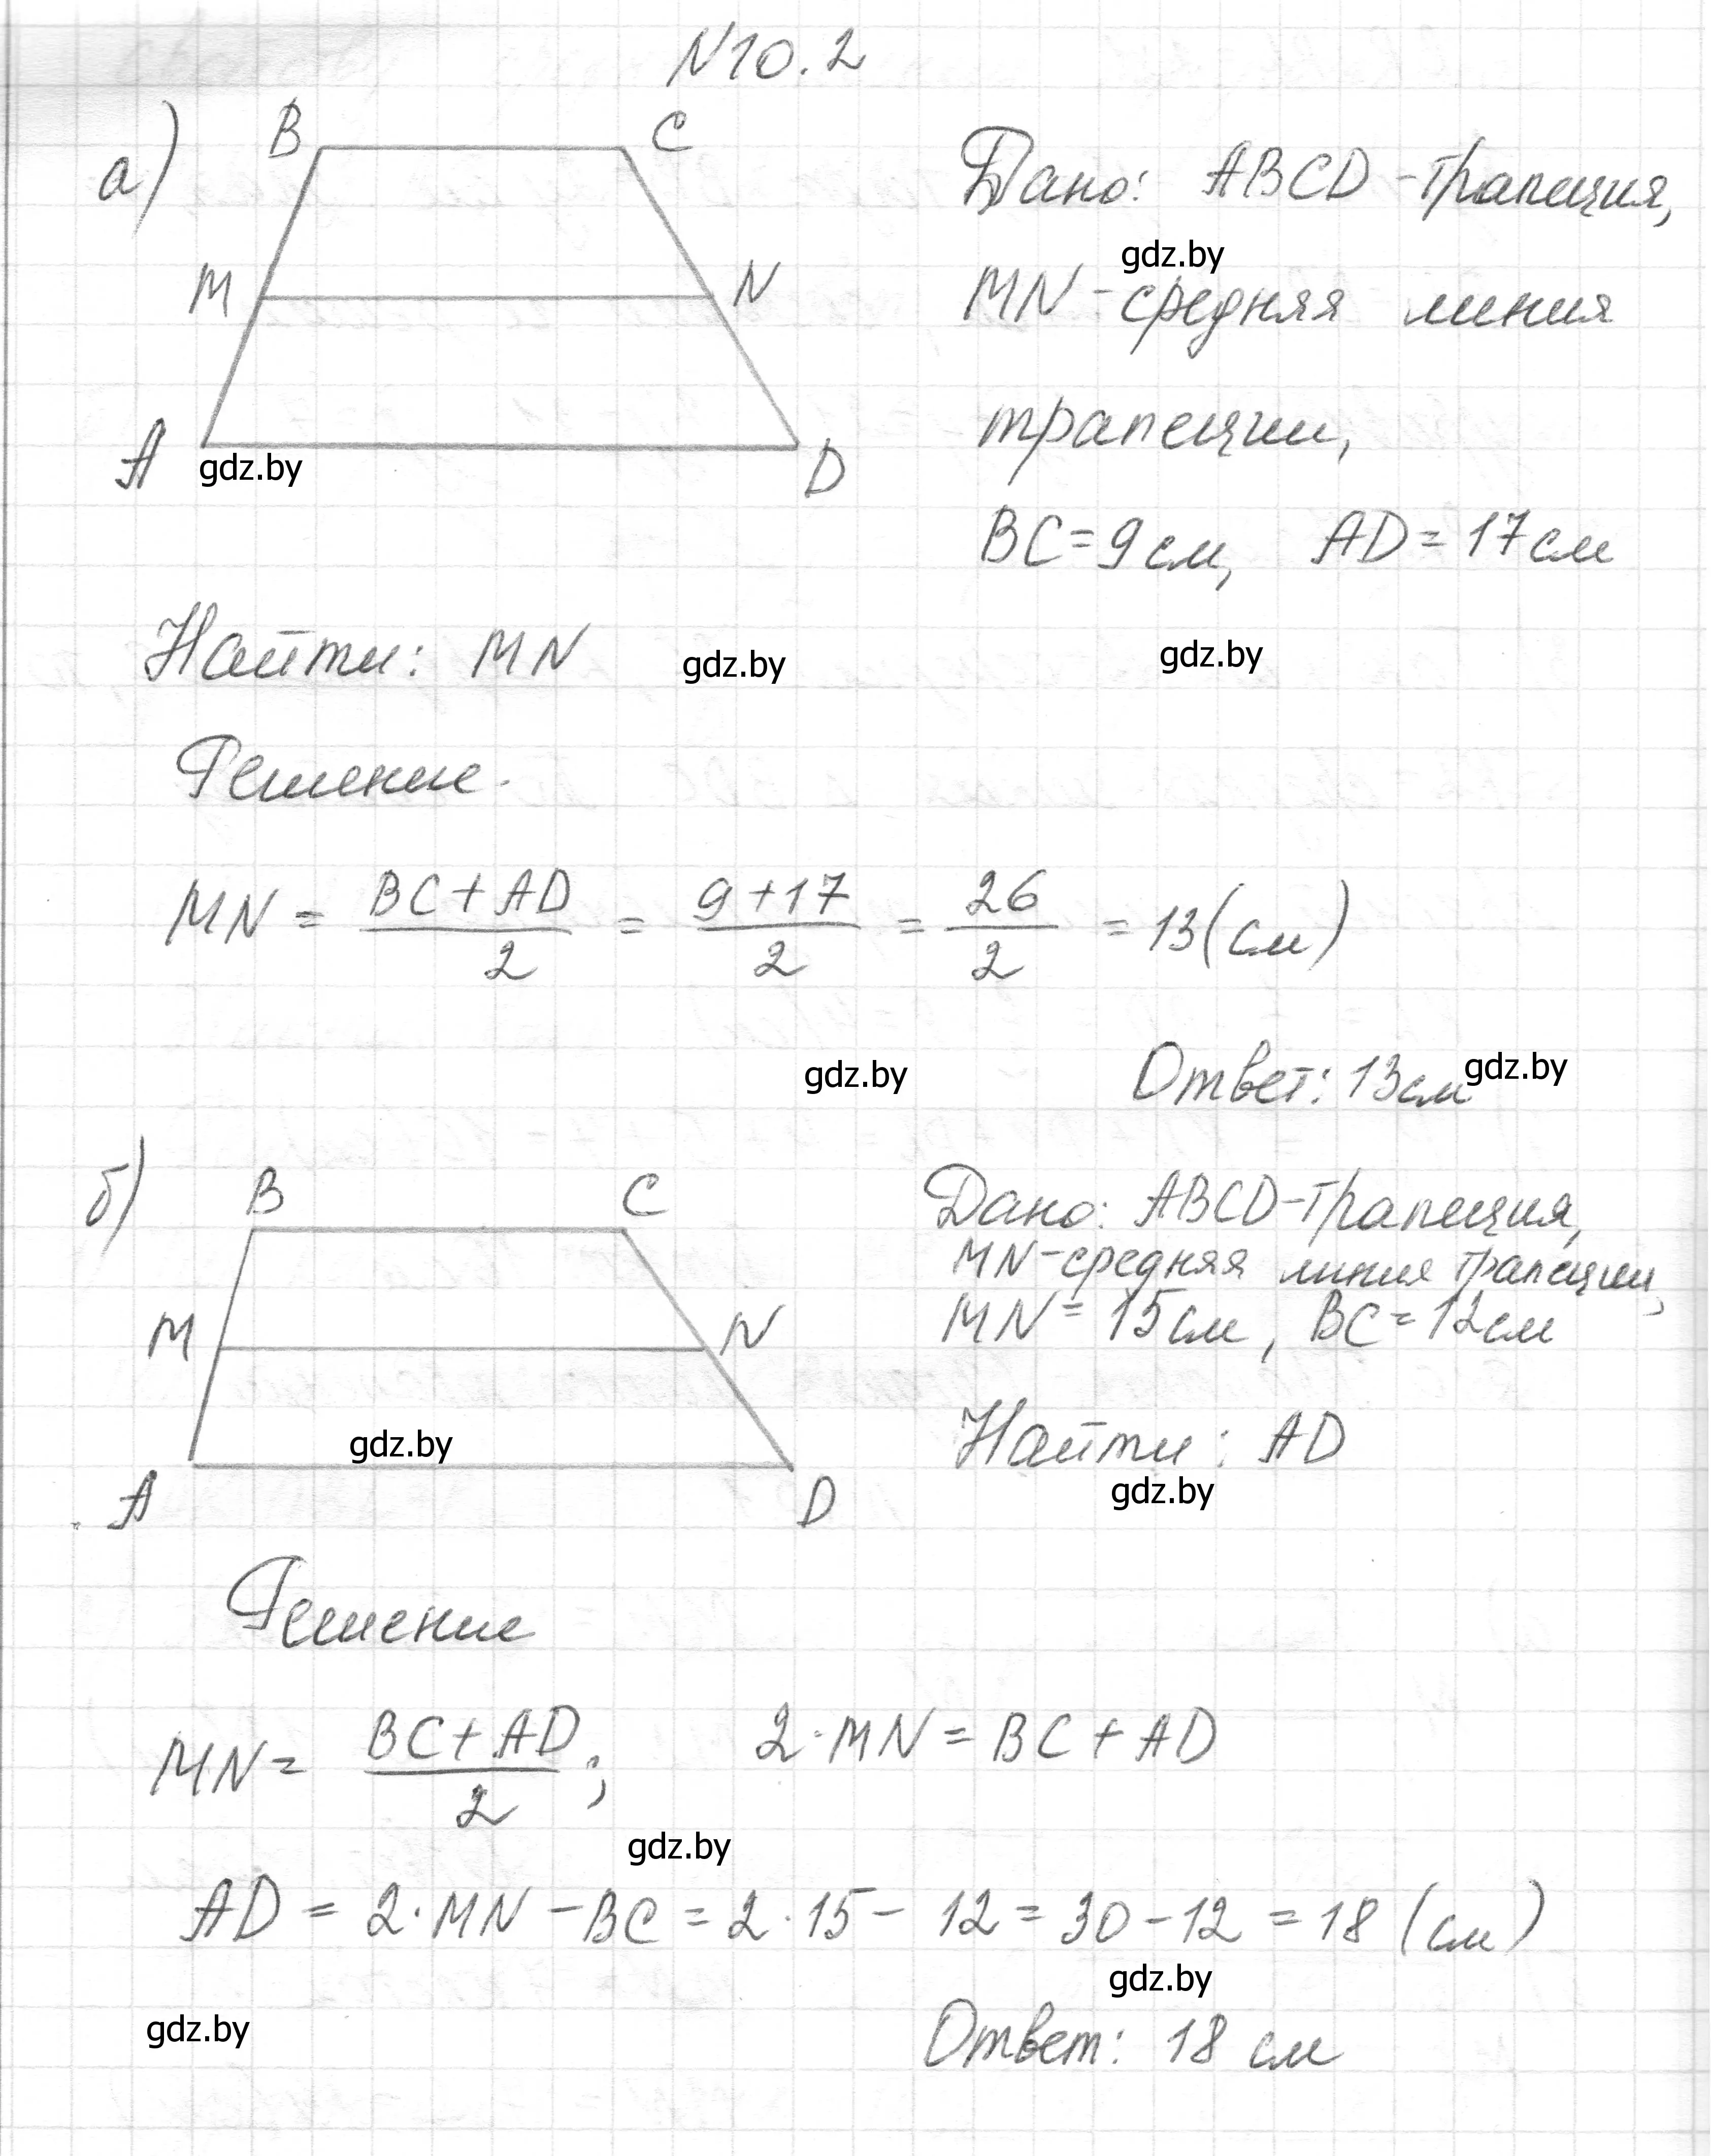 №10.2
а)
B C
M N
A D
gdz.by
Дано: ABCD - трапеция,
gdz.by
MN - средняя линия
трапеции,
BC = 9 см, AD = 17 см
Найти: MN
gdz.by
gdz.by
Решение.
MN = (BC + AD)/2 = (9 + 17)/2 = 26/2 = 13 (см)
gdz.by
Ответ: 13 см
gdz.by
б)
B C
M N
gdz.by
A D
Дано: ABCD - трапеция,
MN - средняя линия трапеции,
MN = 15 см, BC = 12 см
Найти: AD
gdz.by
Решение
MN = (BC + AD)/2; 2·MN = BC + AD
gdz.by
AD = 2·MN - BC = 2·15 - 12 = 30 - 12 = 18 (см)
gdz.by
gdz.by
Ответ: 18 см